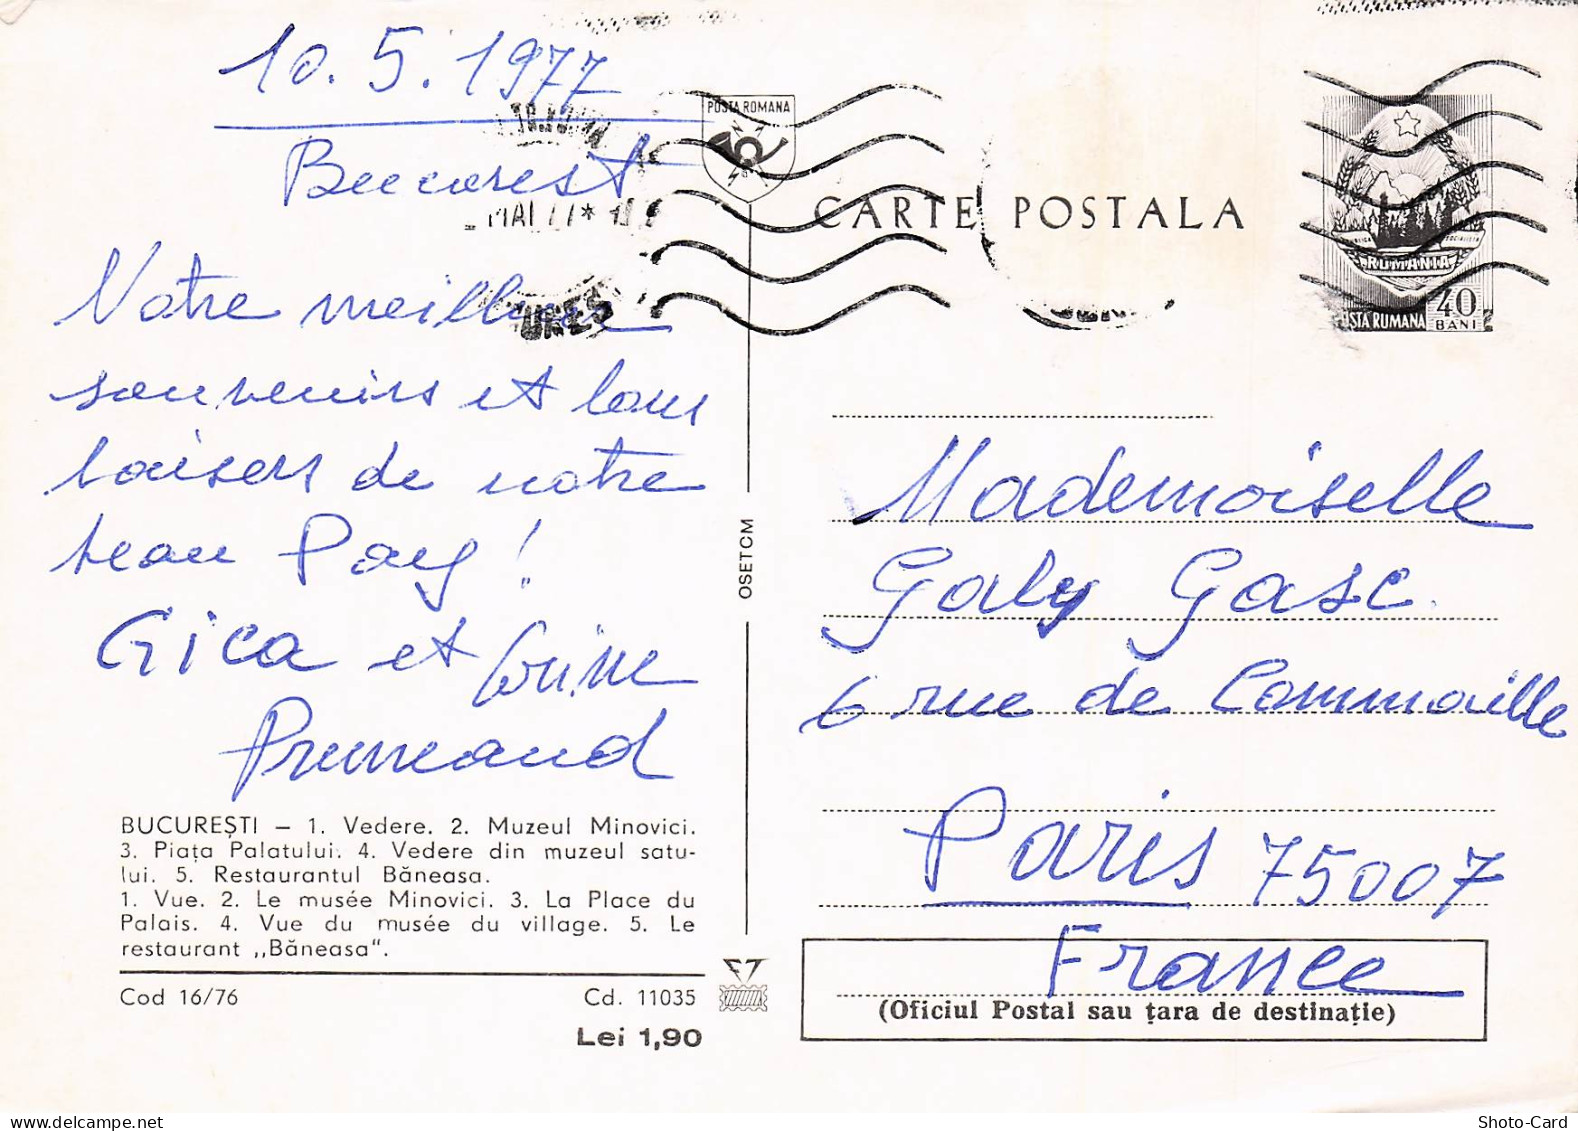 10.5.1977
Bucarest
Notre meilleure
souvenirs et bons
baisers de notre
beau Pay!
Gica et Corinne
Pruneaud
BUCUREȘTI – 1. Vedere. 2. Muzeul Minovici.
3. Piața Palatului. 4. Vedere din muzeul satu-
lui. 5. Restaurantul Băneasa.
1. Vue. 2. Le musée Minovici. 3. La Place du
Palais. 4. Vue du musée du village. 5. Le
restaurant „Băneasa".
Cod 16/76 Cd. 11035
Lei 1,90
OSETCM
POSTA ROMANA
MAI 77*
CARTE POSTALA
ROMANIA
POSTA RUMANA 40 BANI
Mademoiselle
Galy Gasc
6 rue de Commaille
Paris 75007
France
(Oficiul Postal sau țara de destinație)
Shoto-Card